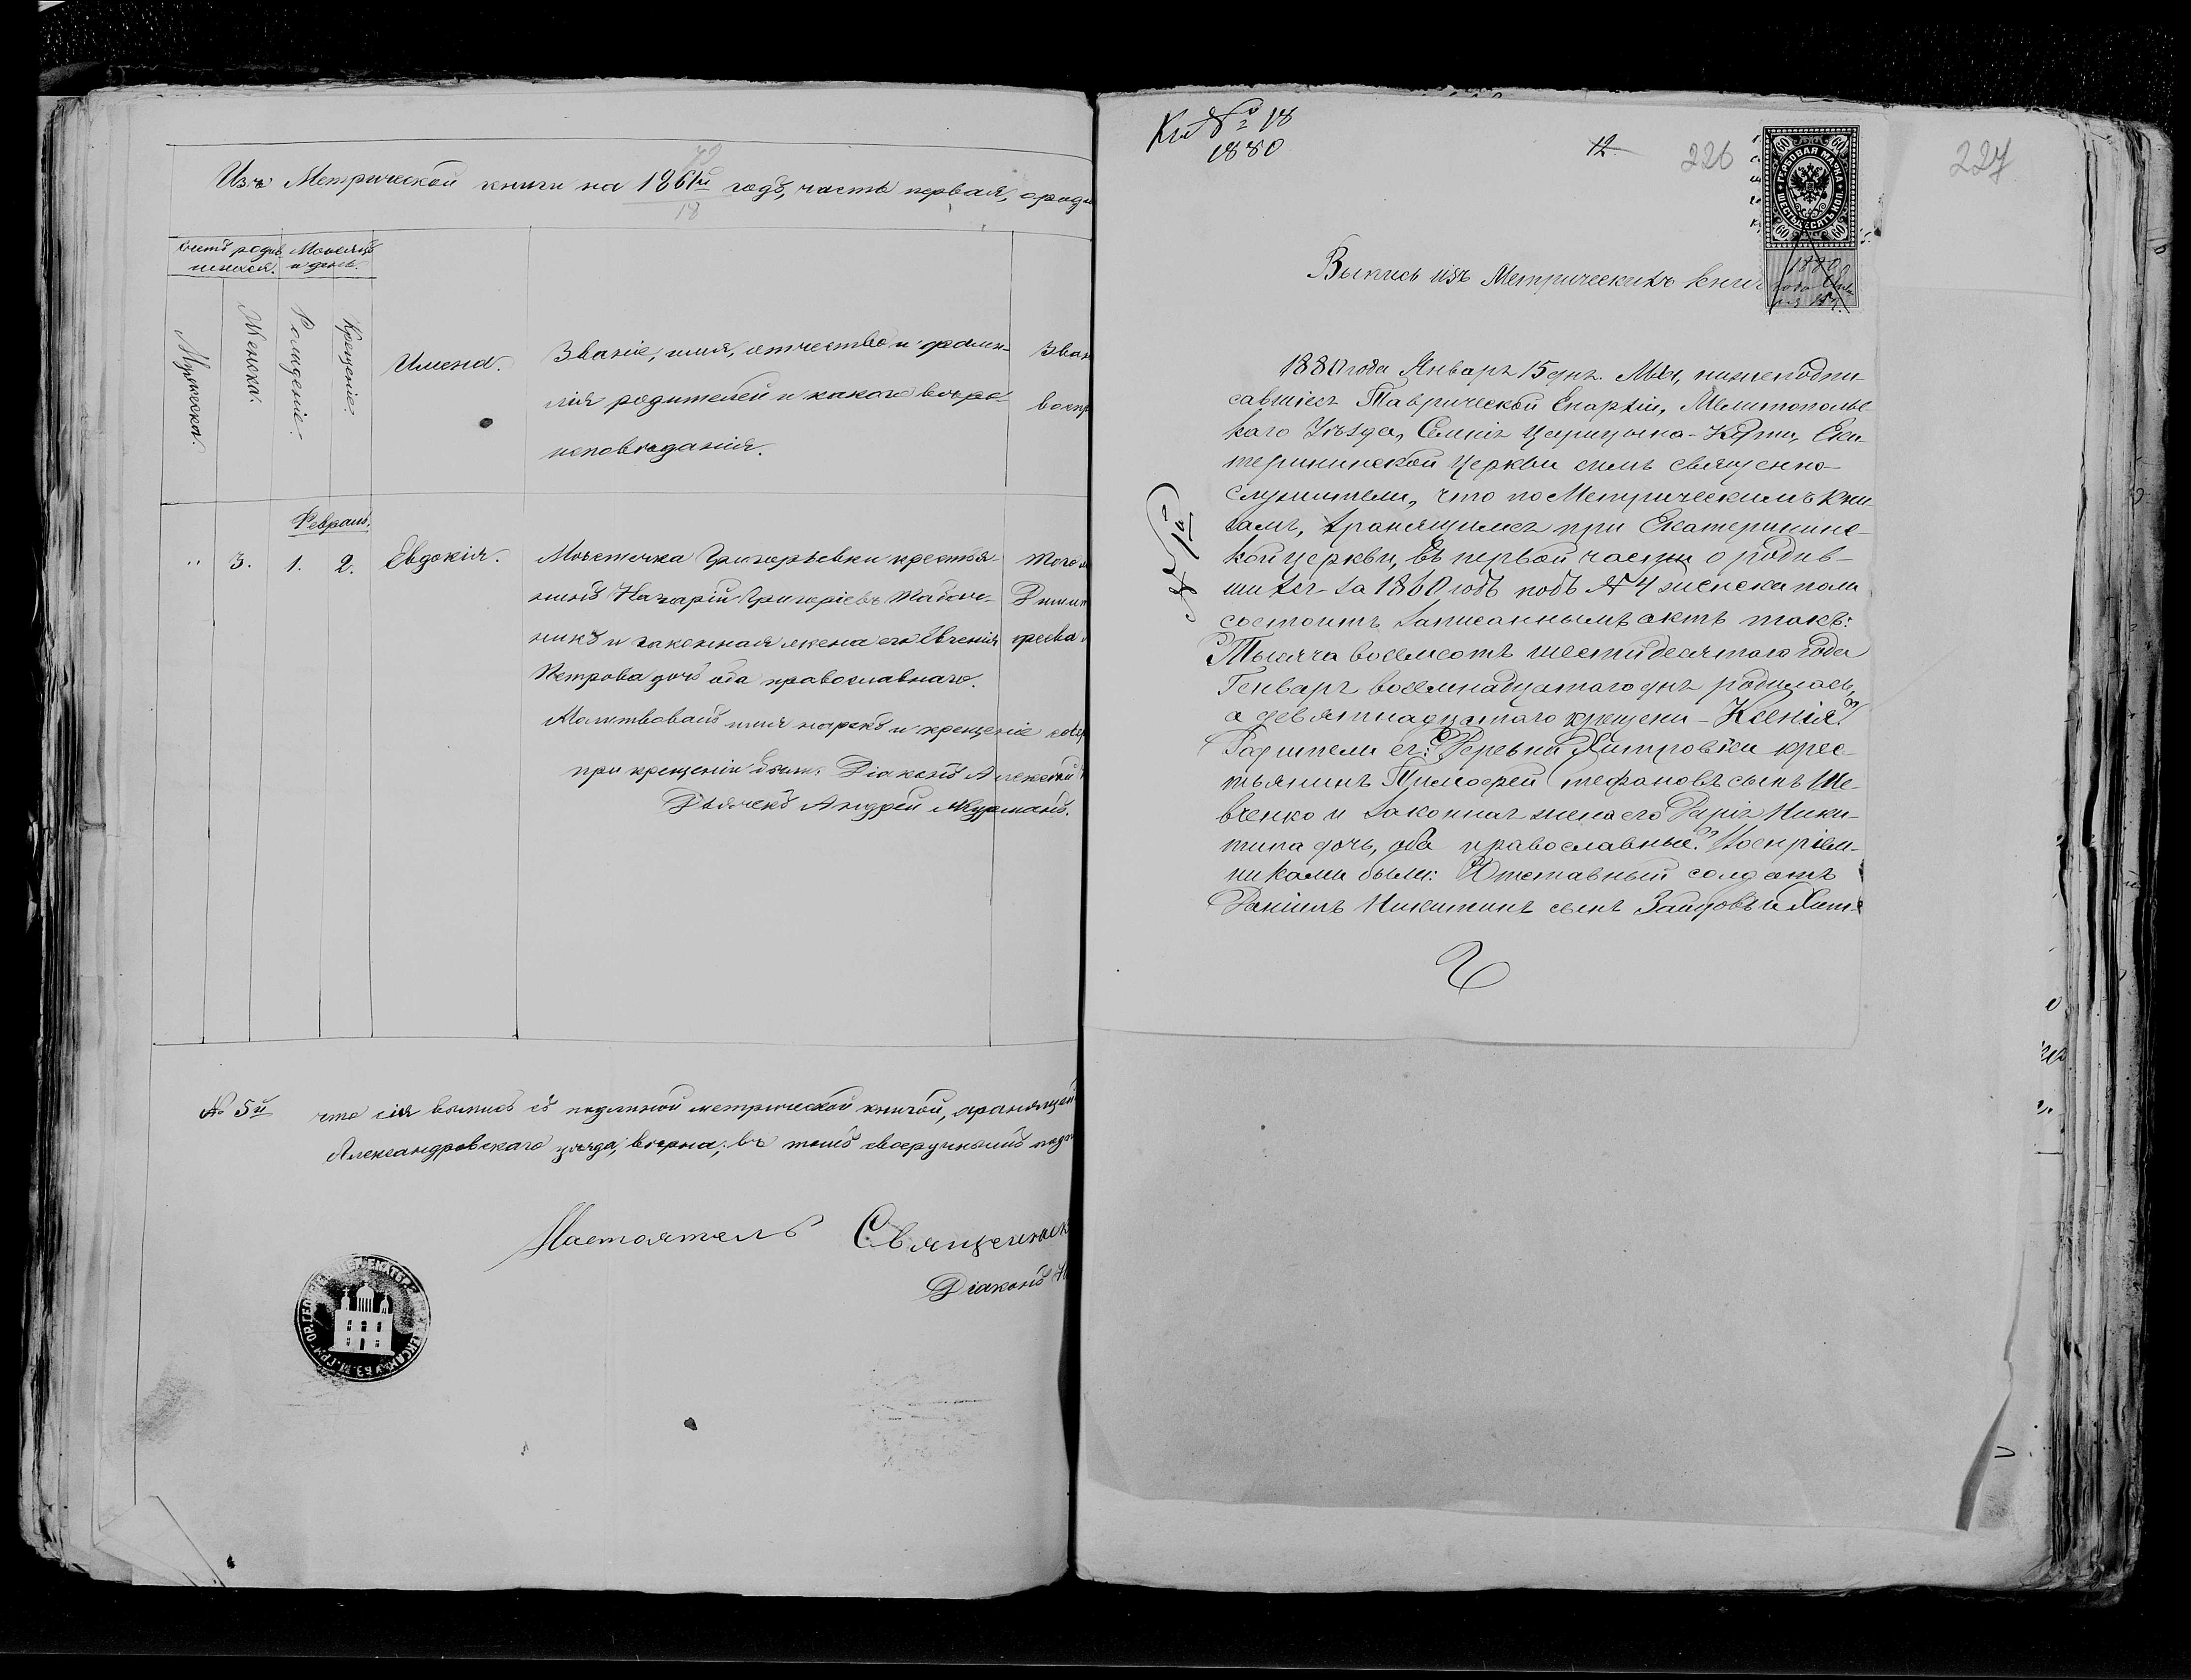 Изъ Метрической книги на 1861й годъ, часть первая, о роди
18
Счетъ родив
шихся.
Мѣсяцъ
и день.
Мужеска.
Женска.
Рожденіе.
Крещеніе.
Имена.
Званіе, имя, отчество и фами-
лія родителей и какого вѣро-
исповѣданія.
Зван
воспр
Февраль.
" 3. 1. 2. Евдокія.
Мѣстечка Григорьевки крестья-
нинъ Назарій Григоріевъ
никъ и законная жена его Евгенія
Петрова дочь оба православнаго.
Того
креста
Молитвовалъ имя нарекъ и крещеніе сове
при крещеніи были: Діаконъ Алексѣй
Дьячекъ Андрей
№ 5й что сія выпись съ подлинной метрической книгой, хранящей
Александровскаго уѣзда, вѣрна; въ томъ своеручнымъ подп
Настоятель Священник
Діаконъ
№ 18
1880
12
226
227
60 60
ГЕРБОВАЯ МАРКА
ШЕСТЬДЕСЯТЪ КОП.
60 60
1880
года
Выпись изъ Метрическихъ книг
№ 12
1880 года Января 15 дня. Мы, нижеподпи-
савшіеся Таврической Епархіи, Мелитопольс-
каго Уѣзда, Селенія Царицына-Кута, Ека-
терининской Церкви симъ священно-
служители, что по Метрическимъ Кни-
гамъ, хранящимся при Екатеринине-
кой церкви, въ первой части о родив-
шихся за 1860 годъ подъ № 4 женска пола
состоитъ записаннымъ актъ такъ:
Тысяча восемсотъ шестидесятого года
Генваря восемнадцатаго дня родилась,
а девятнадцатого крещена - Ксенія.
Родители ея: Деревни Дмитровки крес-
тьянинъ Тимофей Стефановъ сынъ Ше-
вченко и законная жена его Дарія Ники-
тина дочь, оба православные. Воспріем-
никами были: Отставный солдатъ
Даніилъ Никитинъ сынъ Зайцовъ и